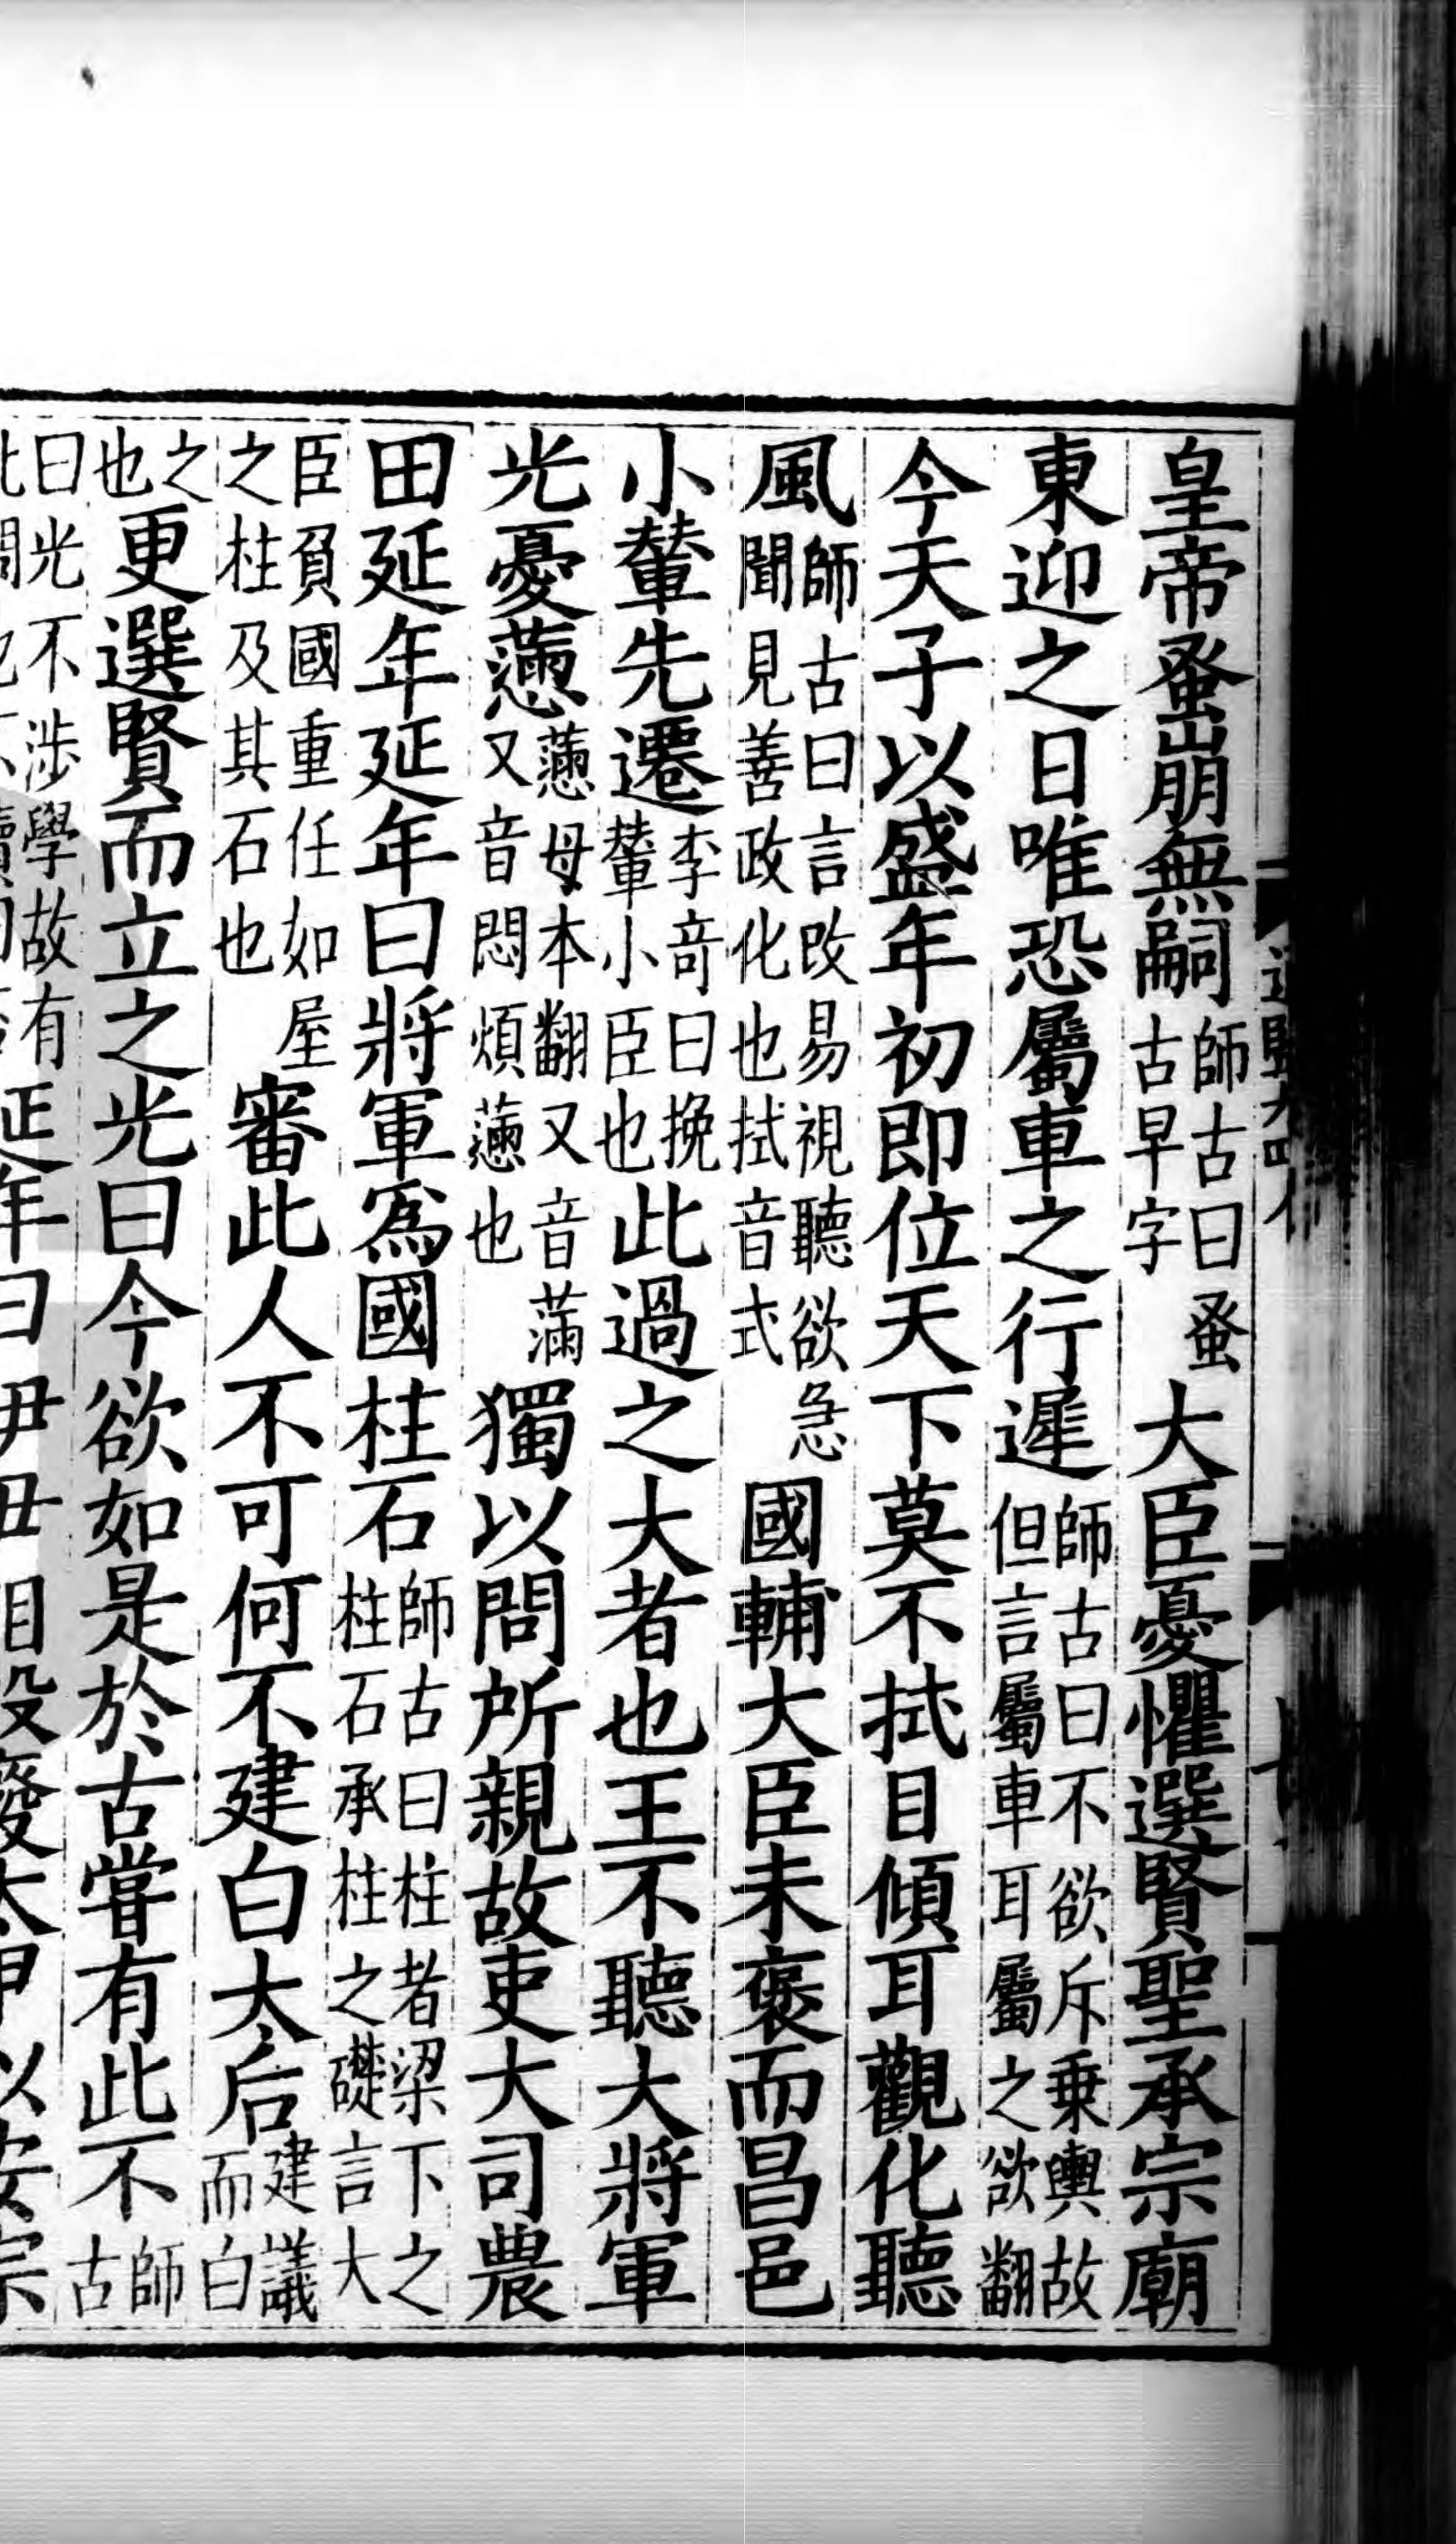 皇帝蚤崩無嗣師古曰蚤古早字大臣憂懼選賢聖承宗廟
東迎之日唯恐屬車之行遲師古曰不欲斥乗輿故但言屬車耳屬之欲翻
今天子以盛年初即位天下莫不拭目傾耳觀化聽
風師古曰言改易視聽欲急聞見善政化也拭音式國輔大臣未褒而昌邑
小輦先遷李竒曰挽輦小臣也此過之大者也王不聽大將軍
光憂懣懣母本翻又音滿又音悶煩懣也獨以問所親故吏大司農
田延年延年曰將軍爲國柱石師古曰柱者梁下之柱石承柱之礎言大
臣負國重任如屋之柱及其石也審此人不可何不建白太后建議而白
之也更選賢而立之光曰今欲如是於古嘗有此不師古
曰光不涉學故有